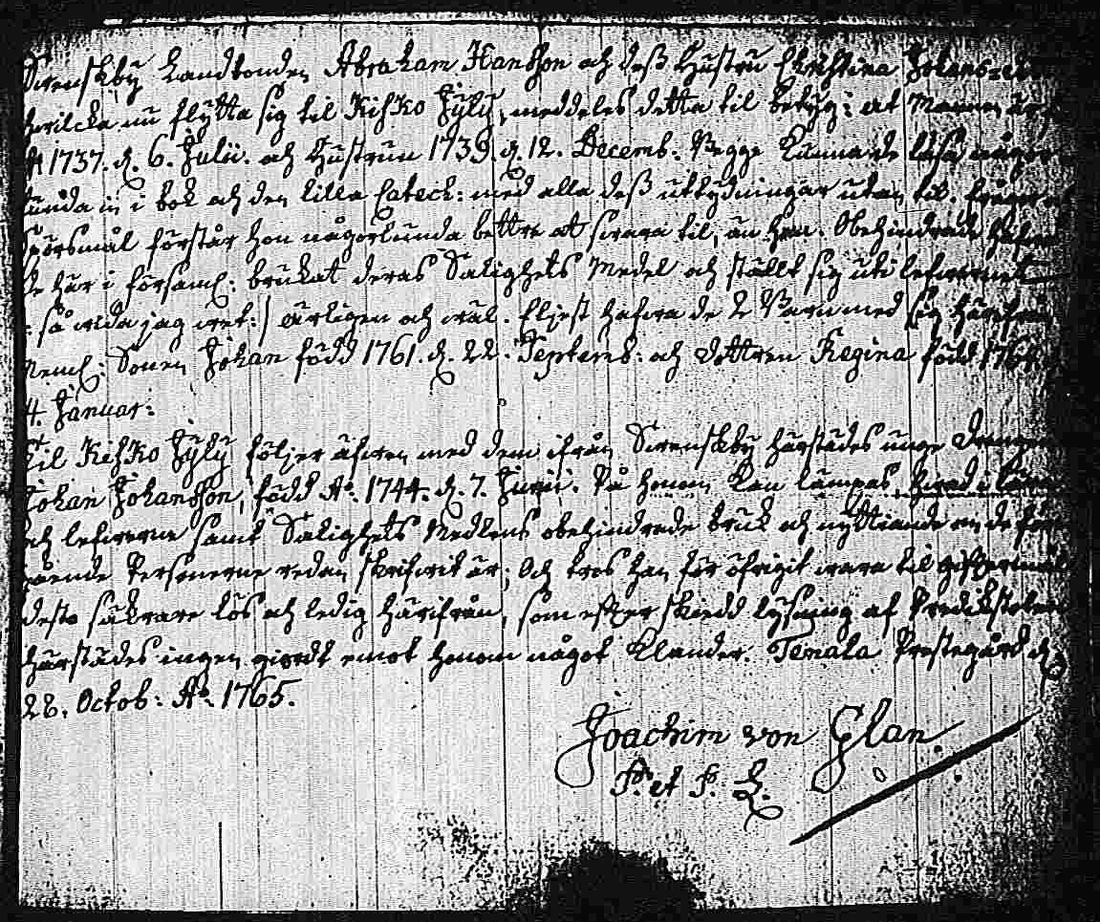 Svenskby Landbonden Abraham Hansson och dess Hustru Christina Johans-
hvilcka nu flytta sig til Kisko Jyly, meddeles detta til betyg: at Mannen är
A 1737. d. 6. Julii. och Hustrun 1739. d. 12. Decemb: Begge kunna de läsa någor
lunda in i bok och den lilla Catech: med alla dess uttydningar utan til.
Spörsmål förstår hon någorlunda bettre at svara til, än han. Obehindrade hafva
de här i församl: brukat deras Salighets Medel och ställt sig uti lefvernet
: så vida jag vet:/ ärligen och väl. Eljest hafva de 2 Barn med sig härifrån
Neml: Sonen Johan född 1761. d. 22. Septemb: och dottren Regina född 1764.
4. Januar:
Til Kisko Jyly följer äfven med dem ifrån Svenskby härstädes unge Drengen
Johan Johansson, född A:o 1744. d. 7. Junii. På honom kan lämpas hvad i
och lefverne samt Salighets Medlens obehindrade bruk och nyttiande om de för
gående Personerne redan skrifvit är; Och tros han för öfrigit vara til
desto säkrare lös och ledig härifrån, som efter skiedd lysning af Predikstolen
härstädes ingen giordt emot honom något Klander. Tenala Prestegård d.
28. Octob: A:o 1765.
Joachim von Glan.
P. et P. L.